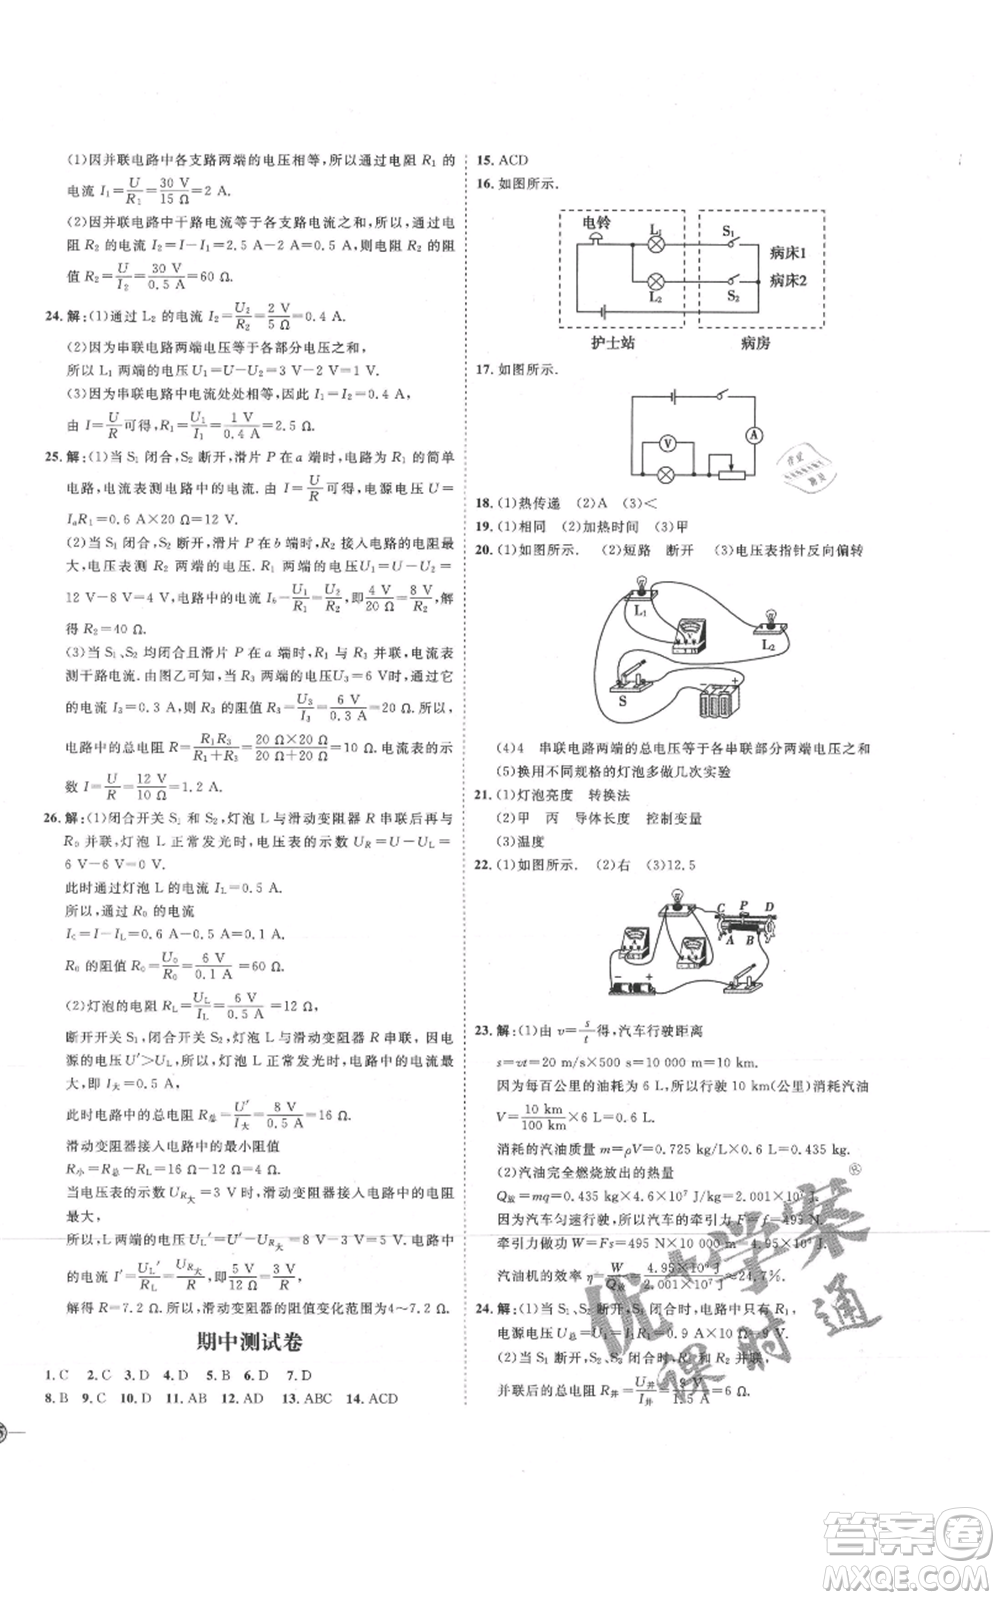 (1)因并联电路中各支路两端的电压相等,所以通过电阻 R₁ 的
电流 I₁=U/R₁=30 V/15 Ω=2 A.
(2)因并联电路中干路电流等于各支路电流之和,所以,通过电
阻 R₂ 的电流 I₂=I-I₁=2.5 A-2 A=0.5 A,则电阻 R₂ 的阻
值 R₂=U/I₂=30 V/0.5 A=60 Ω.
24.解:(1)通过 L₂ 的电流 I₂=U₂/R₂=2 V/5 Ω=0.4 A.
(2)因为串联电路两端电压等于各部分电压之和,
所以 L₁ 两端的电压 U₁=U-U₂=3 V-2 V=1 V.
(3)因为串联电路中电流处处相等,所以 I₁=I₂=0.4 A,
由 I=U/R 可得,R₁=U₁/I₁=1 V/0.4 A=2.5 Ω.
25.解:(1)当 S₁ 闭合,S₂ 断开,滑片 P 在 a 端时,只有 R₁ 的简单
电路,电流表测电路中的电流.由 I=U/R 可得,电源电压 U=
IₐR₁=0.6 A×20 Ω=12 V.
(2)当 S₁ 闭合,S₂ 断开,滑片 P 在 b 端时,R₂ 接入电路的电阻最
大,电压表测 R₂ 两端的电压.R₁ 两端的电压 U₁=U-U₂=
12 V-8 V=4 V,电路中的电流 I_b=U₁/R₁=U₂/R₂,即 4 V/20 Ω=8 V/R₂,解
得 R₂=40 Ω.
(3)当 S₁、S₂ 均闭合且滑片 P 在 a 端时,R₁ 与 R₃ 并联,电流表
测干路电流.由图乙可知,当 R₃ 两端的电压U₃=6 V时,通过它
的电流 I₃=0.3 A,则 R₃ 的阻值 R₃=U₃/I₃=6 V/0.3 A=20 Ω.所以,
电路中的总电阻 R=R₁R₃/(R₁+R₃)=20 Ω×20 Ω/(20 Ω+20 Ω)=10 Ω.电流表的示
数 I=U/R=12 V/10 Ω=1.2 A.
26.解:(1)闭合开关 S₁ 和 S₂,灯泡 L 与滑动变阻器 R 串联后再与
R₀ 并联,灯泡 L 正常发光时,电压表的示数 U_R=U-U_L=
6 V-6 V=0 V.
此时通过灯泡 L 的电流 I_L=0.5 A.
所以,通过 R₀ 的电流
I₀=I-I_L=0.6 A-0.5 A=0.1 A.
R₀ 的阻值 R₀=U₀/I₀=6 V/0.1 A=60 Ω.
(2)灯泡的电阻 R_L=U_L/I_L=6 V/0.5 A=12 Ω,
断开开关 S₁,S₂,灯泡 L 与滑动变阻器 R 串联,因电
源的电压U′>U_L,所以,灯泡L正常发光时,电路中的电流最
大,即 I大=0.5 A,
此时电路中的总电阻 R总=U′/I大=8 V/0.5 A=16 Ω,
滑动变阻器接入电路中的最小阻值
R小=R总-R_L=16 Ω-12 Ω=4 Ω.
当电压表的示数 U_R大=3 V 时,滑动变阻器接入电路中的电
阻最大.
所以,L 两端的电压 U_L′=U′-U_R大=8 V-3 V=5 V,电路中
的电流 I′=U_L′/R_L=U_R大/R,即 5 V/12 Ω=3 V/R,
解得 R=7.2 Ω,滑动变阻器的阻值变化范围为4~7.2 Ω.
期中测试卷
1.C 2.C 3.D 4.D 5.B 6.D 7.D
8.B 9.C 10.D 11.AB 12.AD 13.ABC 14.ACD
15.ACD
16.如图所示.
电铃 L₁ S₁ 病床1
L₂ S₂ 病床2
护士站 病房
17.如图所示.
V A
18.(1)热传递 (2)A (3)<
19.(1)相同 (2)加热时间 (3)甲
20.(1)如图所示. (2)短路 断开 (3)电压表指针反向偏转
L₁ L₂ S - +
(4)4 串联电路两端的总电压等于各串联部分两端电压之和
(5)换用不同规格的灯泡多做几次实验
21.(1)灯泡亮度 转换法
(2)甲 丙 导体长度 控制变量
(3)温度
22.(1)如图所示. (2)右 (3)12.5
C P D
A B
23.解:(1)由 v=s/t得,汽车行驶距离
s=vt=20 m/s×500 s=10 000 m=10 km.
因为每百公里的油耗为 6 L,所以行驶 10 km(公里)消耗汽油
V=10 km/100 km×6 L=0.6 L.
消耗的汽油质量 m=ρV=0.725 kg/L×0.6 L=0.435 kg.
(2)汽油完全燃烧放出的热量
Q放=mq=0.435 kg×4.6×10⁷ J/kg=2.001×10⁷ J.
因为汽车匀速行驶,所以汽车的牵引力 F=f=495 N.
牵引力做功 W=Fs=495 N×10 000 m=4.95×10⁶ J.
汽油机的效率 η=W/Q放=4.95×10⁶ J/2.001×10⁷ J≈24.7%.
24.解:(1)当 S₁、S₂ 断开,S₃闭合时,电路中只有 R₁,
电源电压 U总=
(2)当 S₁ 断开,S₂、S₃ 闭合时,
并联后的总电阻 R并=U并/I并=9 V/1.5 A
优+学案
课时通
作业
精灵
答案卷
MXQE.COM